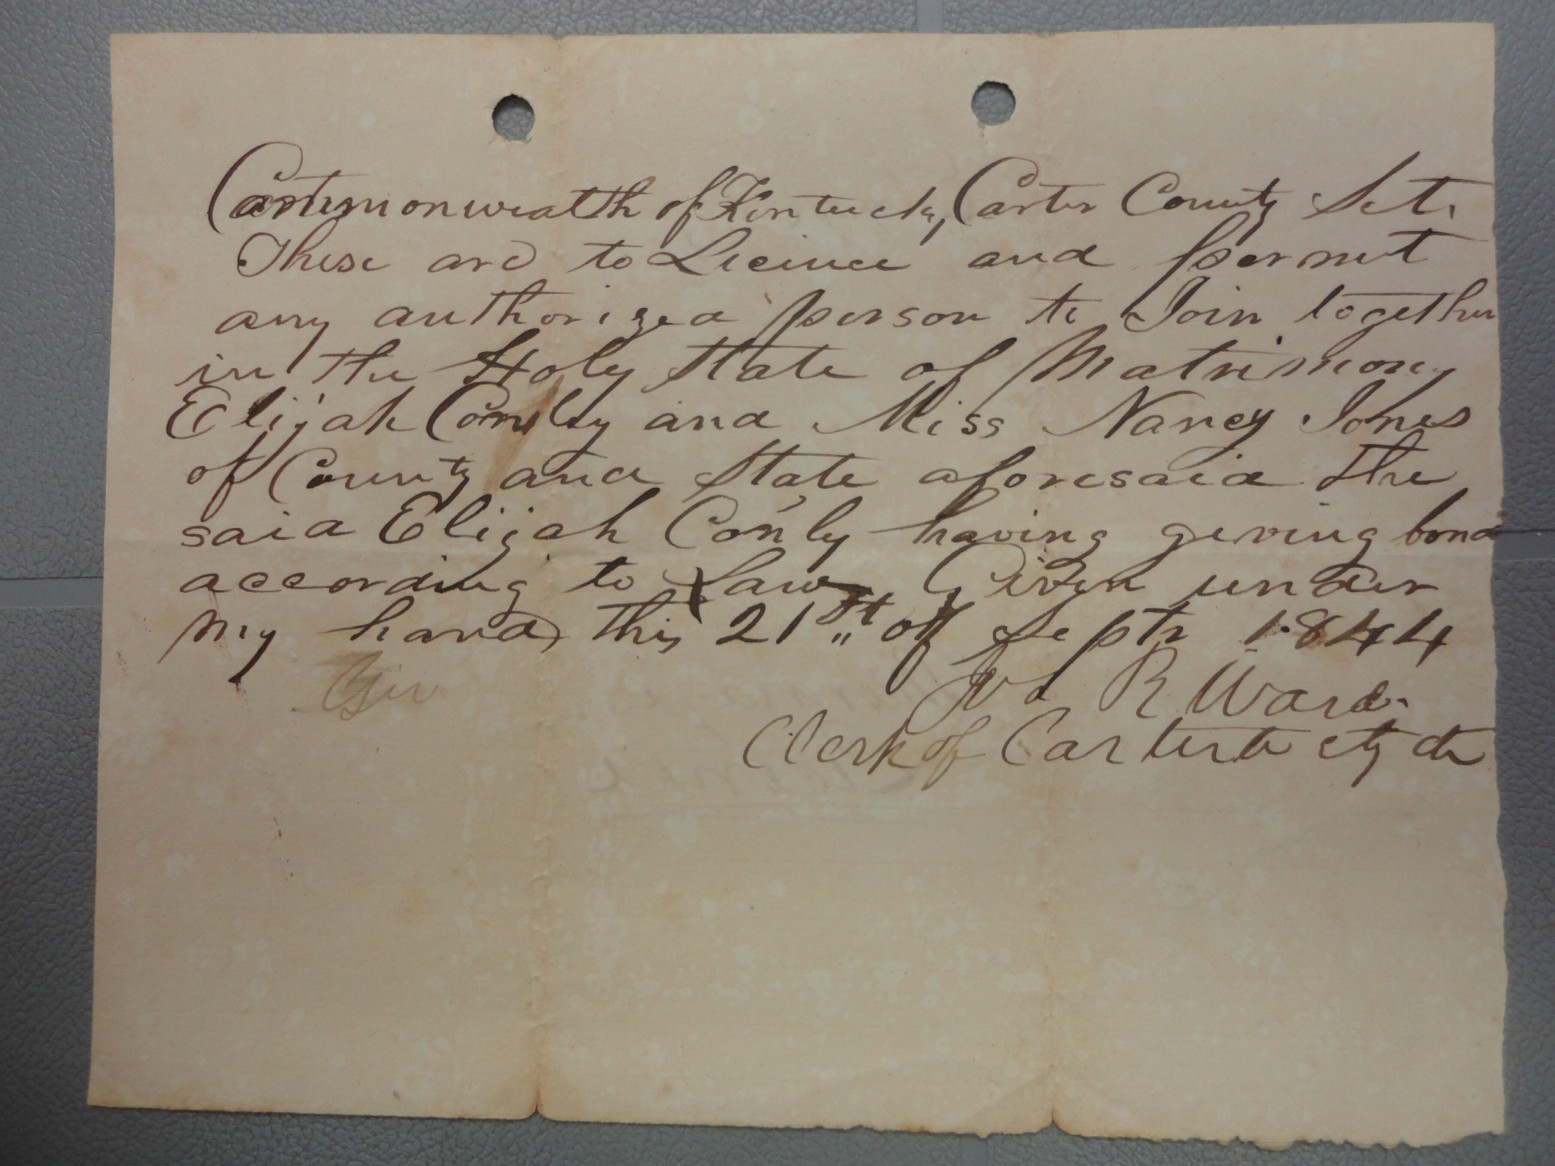 Commonwealth of Kentucky, Carter County Sct.
These are to Licence and permit
any authorized person to Join together
in the Holy State of Matrimony
Elijah Conly and Miss Nancy Jones
of County and State aforesaid the
said Elijah Conly having geving bond
according to Law, Given under
my hand, this 21st of Septr 1844
R Ward.
Clerk of Carter